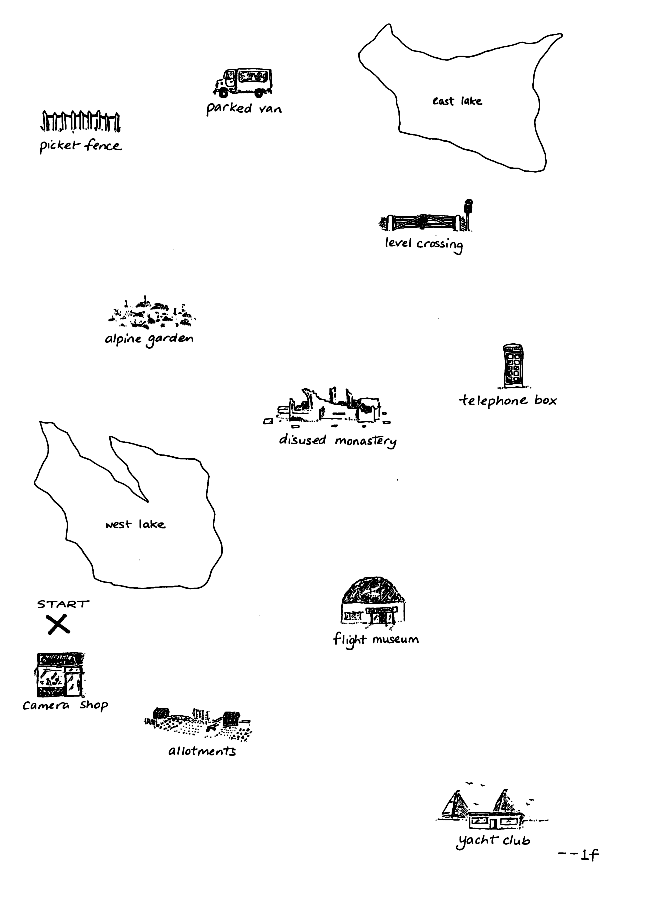 east lake
parked van
picket fence
level crossing
alpine garden
telephone box
disused monastery
west lake
START
flight museum
camera shop
allotments
yacht club
--1f